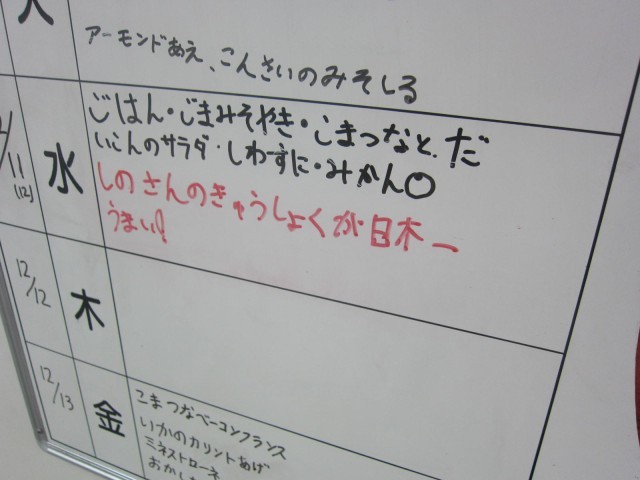 アーモンドあえ、こんさいのみそしる
11
(12)
水
ごはん・ごまみそやき・こまつなと、だ
いこんのサラダ・しわーずに・みかん〇
しのさんのきゅうしょくが日本一
うまい!
12/12
木
12/13
金
こまつなベーコンフランス
いかのカリントあげ
ミネストローネ